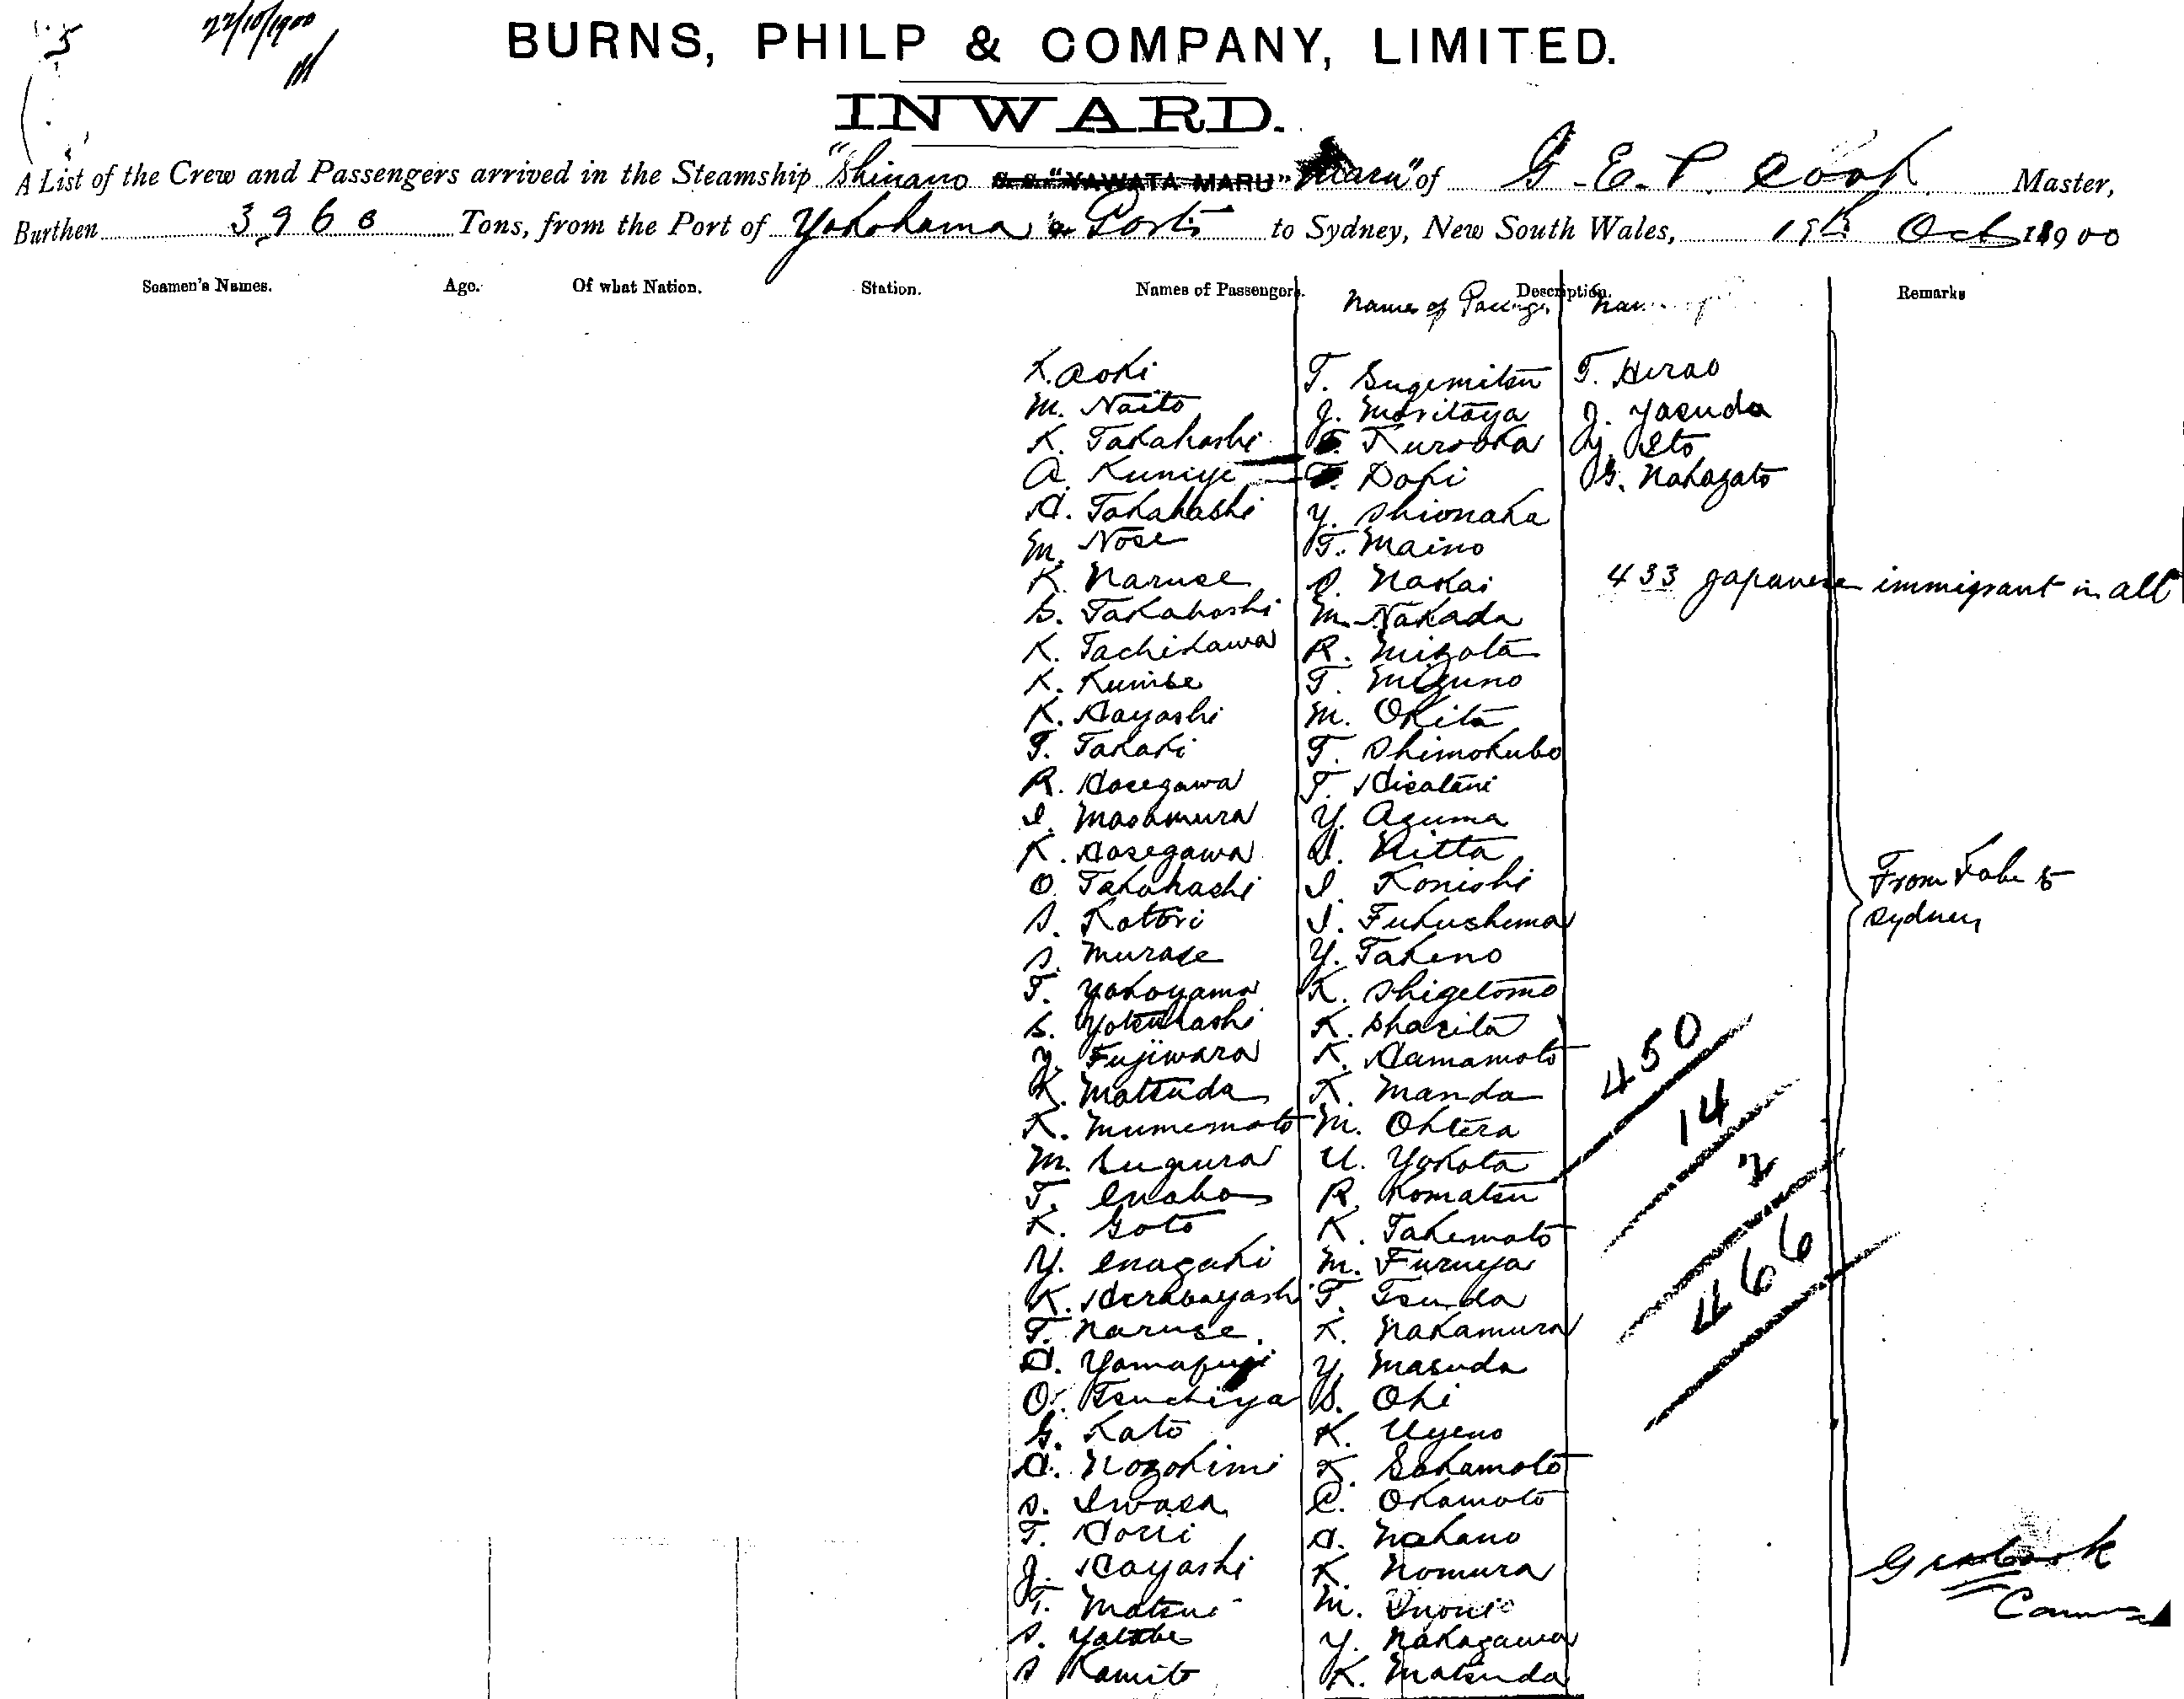 22/10/1900
BURNS, PHILP & COMPANY, LIMITED.
INWARD.
A List of the Crew and Passengers arrived in the Steamship "Shinano S.S. "YAWATA MARU" Maru" of G. E. P. Cook Master,
Burthen 3960 Tons, from the Port of Yokohama & Ports to Sydney, New South Wales, 19th Oct 1900
Seamen's Names. Age. Of what Nation. Station. Names of Passengers. Description. Remarks
Names of Passengr
K. Aoki
M. Naito
K. Takahashi
A. Kuniye
H. Takahashi
M. Nose
K. Naruse
S. Takahashi
K. Tachikawa
K. Kunise
K. Hayashi
T. Takaki
R. Hasegawa
I. Masamura
K. Hasegawa
O. Takahashi
S. Katori
S. Murase
T. Yokoyama
S. Yotsuhashi
Y. Fujiwara
K. Matsuda
K. Mumemoto
M. Sugiura
T. Inaba
K. Goto
Y. Inagaki
K. Herabayashi
T. Naruse.
H. Yamafuji
O. Tsuchiya
G. Kato
H. Nozokimi
S. Iwasa
T. Horii
J. Hayashi
T. Matsui
S. Yatabe
S. Kamito
T. Sugimitsu
J. Moritaya
T. Kurooka
T. Doki
Y. Shionaka
T. Maino
S. Nakai
M. Nakada
R. Mizota
T. Mizuno
M. Okita
T. Shimokubo
T. Hisatani
Y. Azuma
I. Nitta
I. Konishi
I. Fukushima
Y. Takeno
K. Shigetomo
K. Shasita
K. Hamamoto
K. Manda
M. Ohtera
U. Yokota
R. Komatsu
K. Takemoto
M. Furuya
T. Tsuda
K. Nakamura
Y. Masuda
S. Ohi
K. Uyeno
K. Sakamoto
C. Okamoto
H. Nakano
K. Nomura
M. Inoue
Y. Nakagawa
K. Matsuda
T. Hirao
J. Yasuda
Y. Ito
G. Nakazato
433 Japanese immigrant in all
From Kobe to
Sydney
450
14
2
466